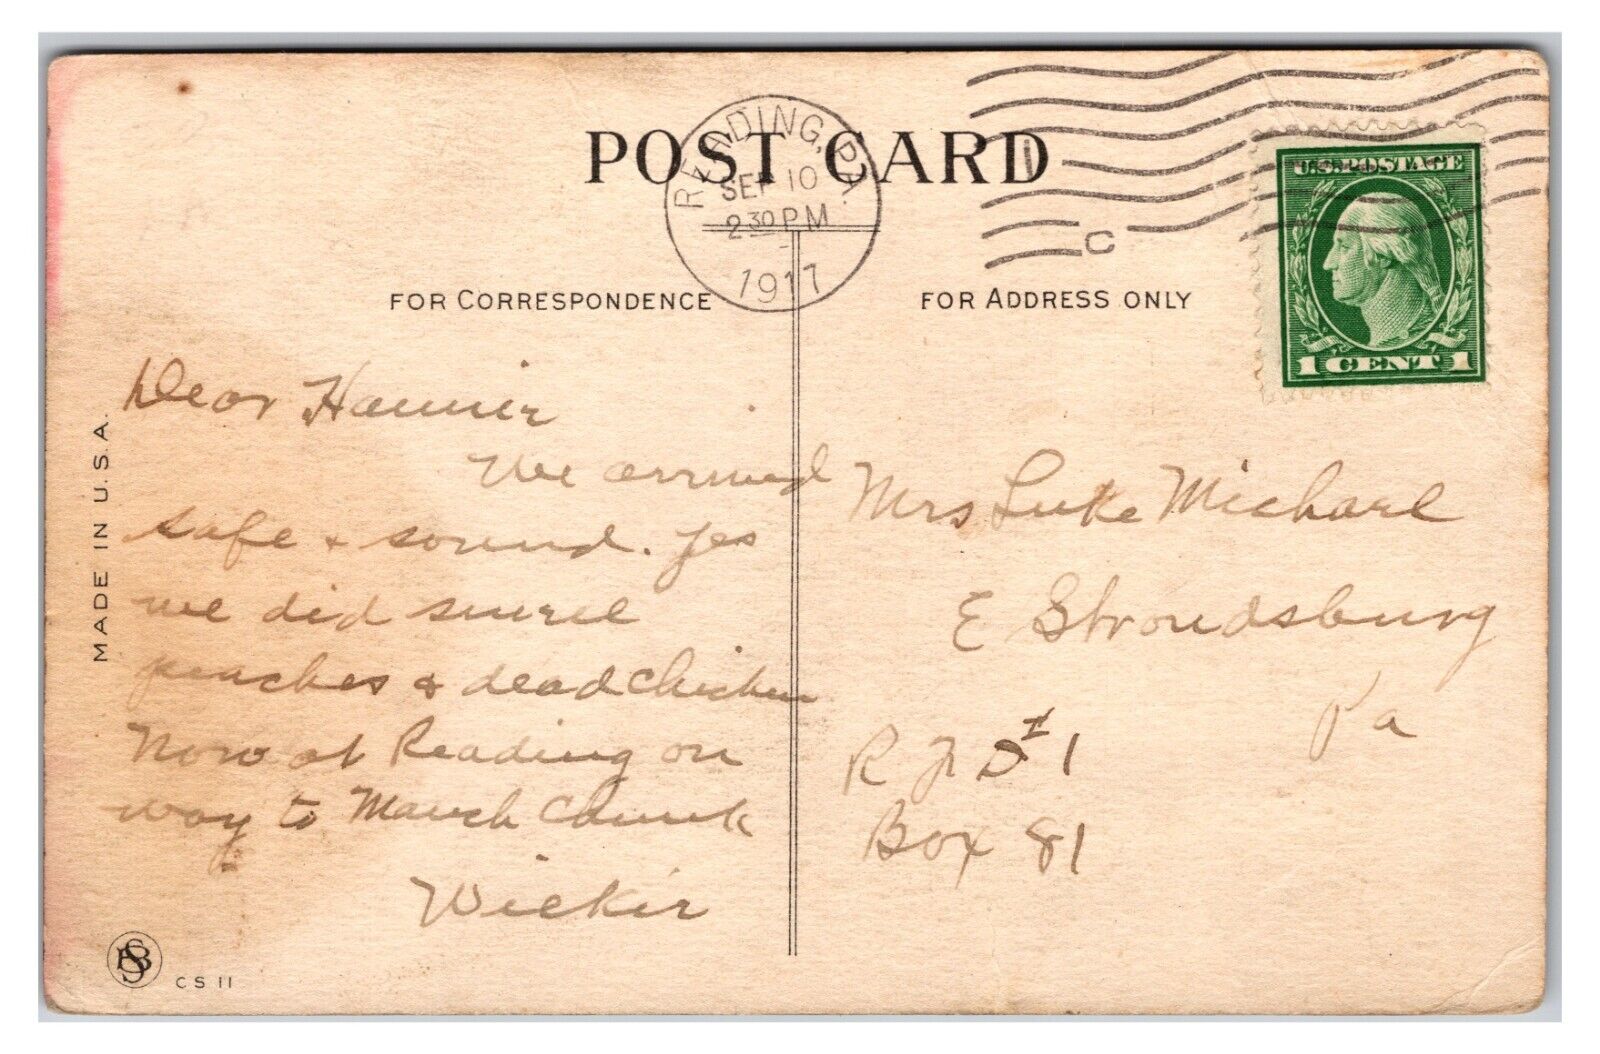 POST CARD
READING, PA.
SEP 10
2 30 PM
1917
C
U.S. POSTAGE
1 CENT 1
FOR CORRESPONDENCE
FOR ADDRESS ONLY
MADE IN U.S.A.
Dear
We arrived
safe & sound. Yes
we did
peaches & dead chicken
Now at Reading on
way to Mauch Chunk
CS 11
Mrs Luke Michael
E Stroudsburg
Pa
R F D #1
Box 81